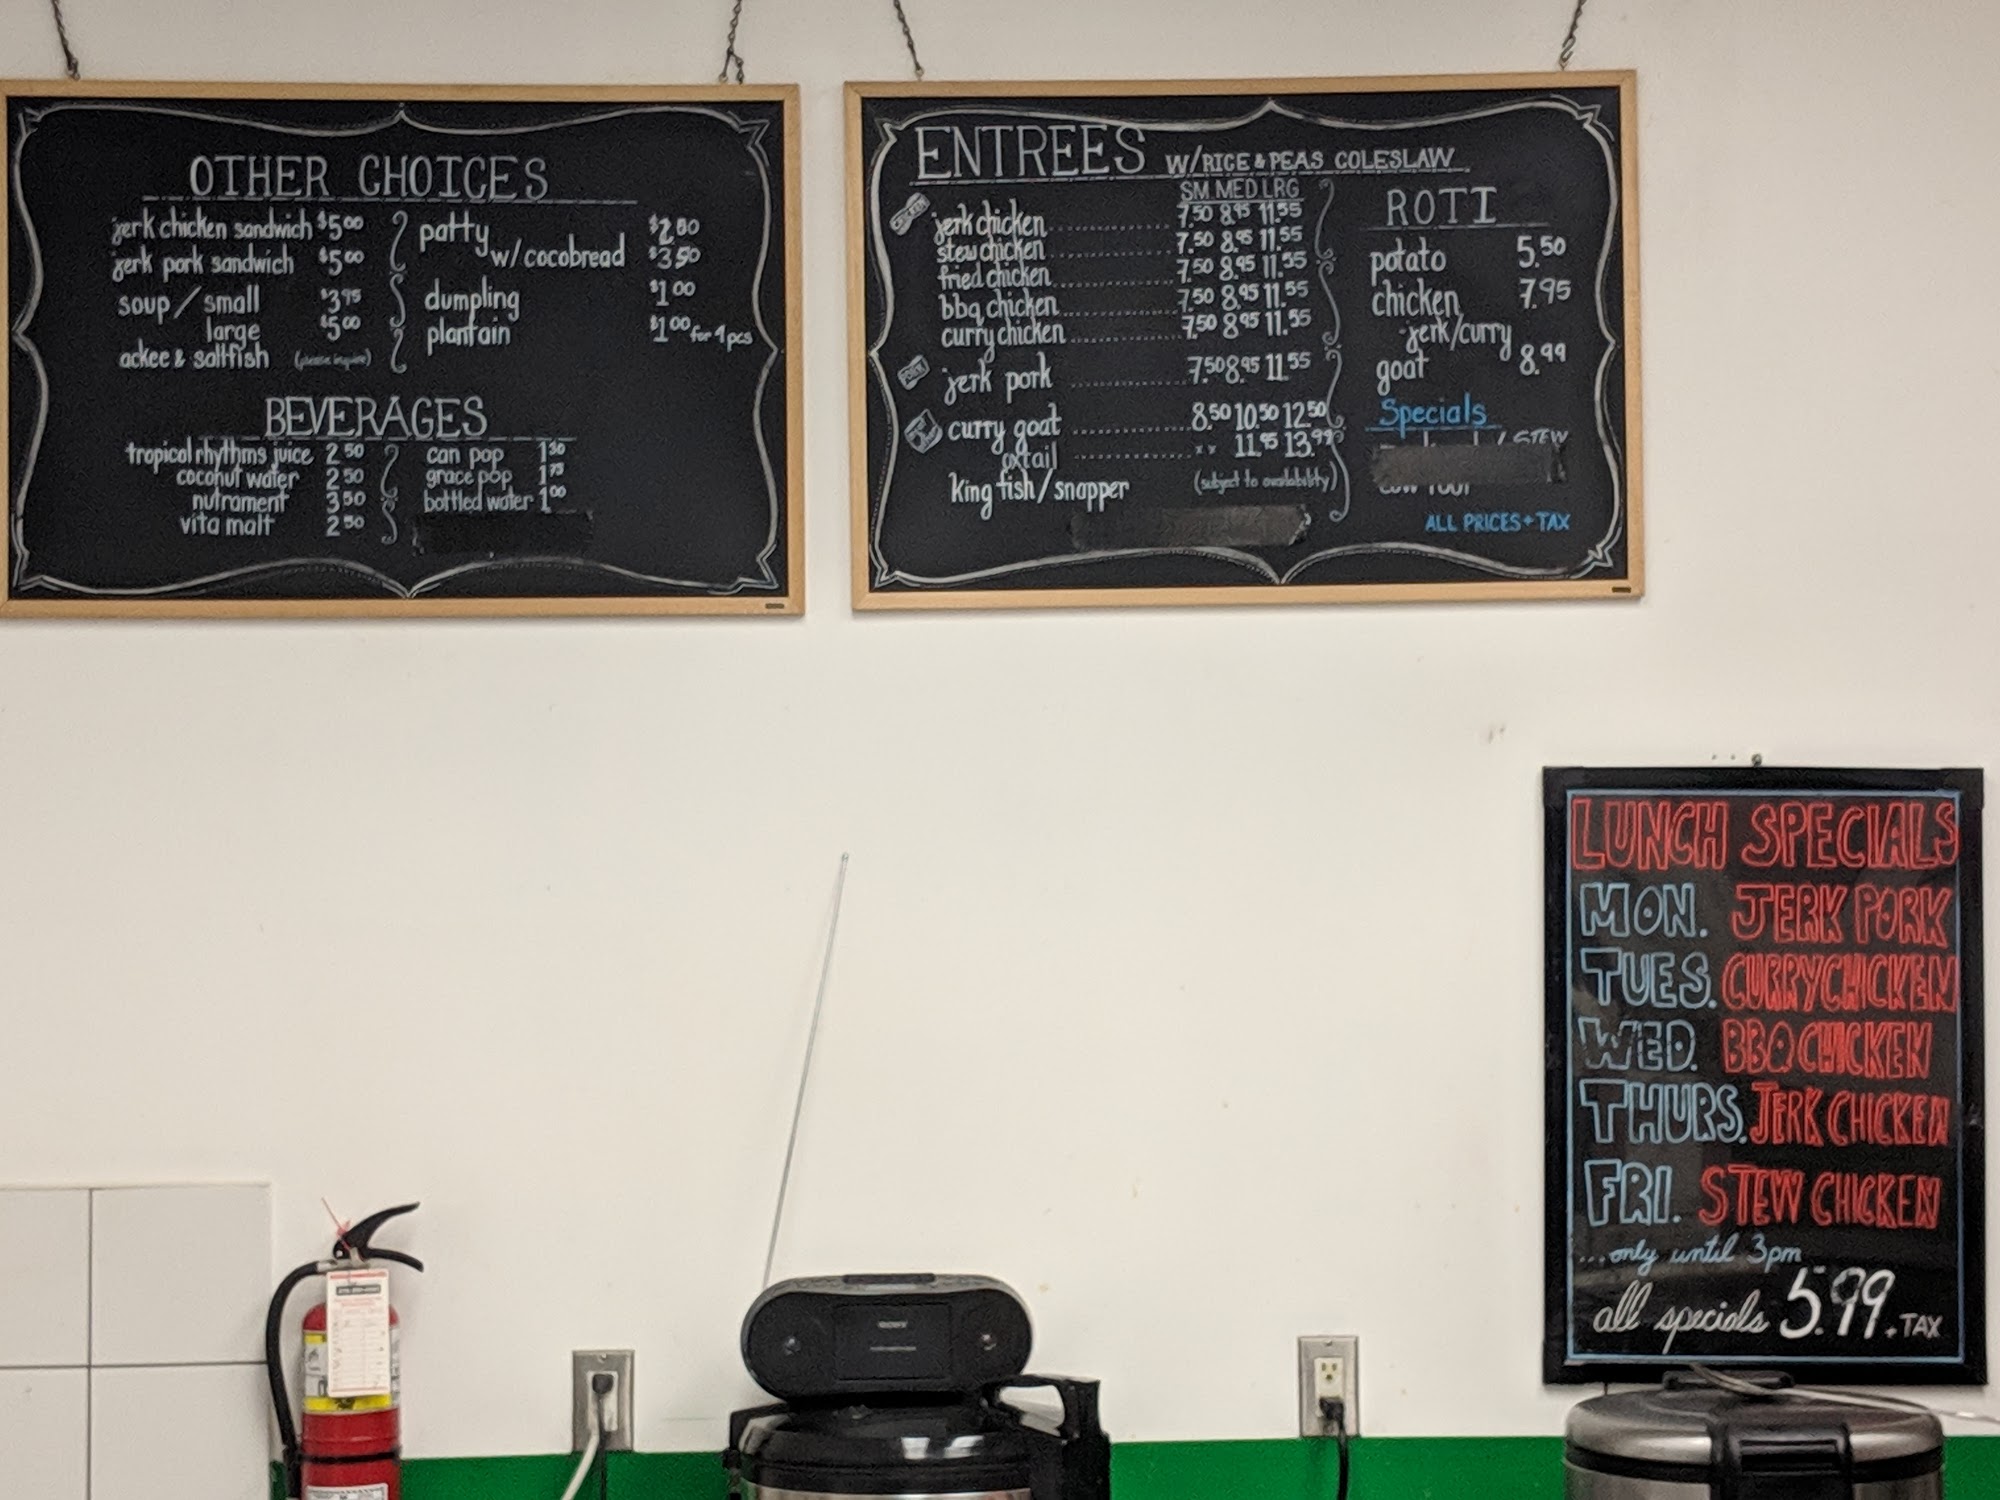 OTHER CHOICES
jerk chicken sandwich $5.00
jerk pork sandwich $5.00
soup / small $3.95
large $5.00
ackee & saltfish (please inquire)
patty $2.80
w/cocobread $3.50
dumpling $1.00
plantain $1.00 for 4 pcs
BEVERAGES
tropical rhythms juice 2.50
coconut water 2.50
nutrament 3.50
vita malt 2.50
can pop 1.30
grace pop 1.75
bottled water 1.00
ENTREES W/RICE & PEAS COLESLAW
SM MED LRG
CHICKEN
jerk chicken 7.50 8.95 11.55
stew chicken 7.50 8.95 11.55
fried chicken 7.50 8.95 11.55
bbq chicken 7.50 8.95 11.55
curry chicken 7.50 8.95 11.55
PORK
jerk pork 7.50 8.95 11.55
curry goat 8.50 10.50 12.50
oxtail xx 11.95 13.99
king fish/snapper (subject to availability)
ROTI
potato 5.50
chicken 7.95
jerk/curry
goat 8.99
Specials
/ STEW
ALL PRICES + TAX
LUNCH SPECIALS
MON. JERK PORK
TUES. CURRY CHICKEN
WED. BBQ CHICKEN
THURS. JERK CHICKEN
FRI. STEW CHICKEN
...only until 3pm
all specials 5.99 + TAX
SONY